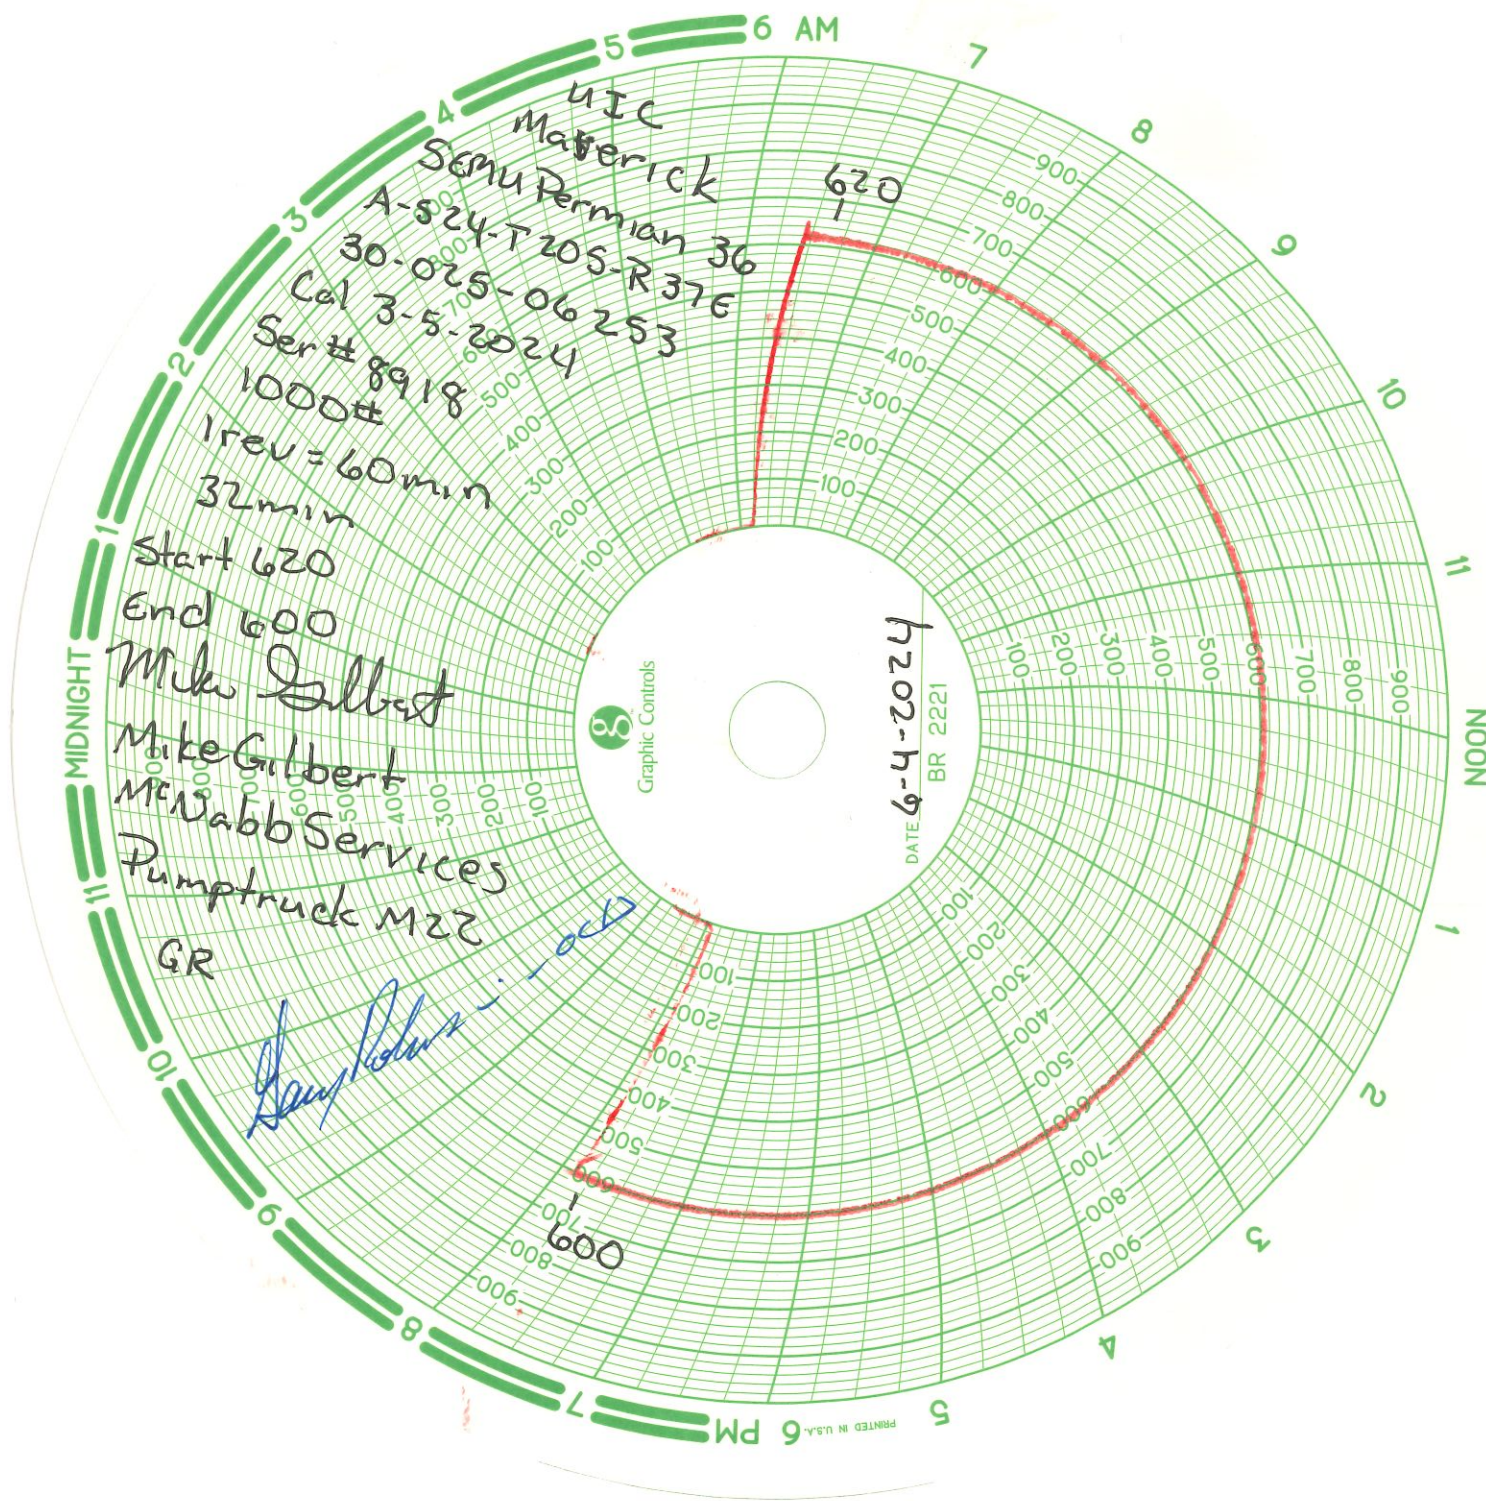 6 AM
7
8
9
10
11
NOON
1
2
3
4
5
6 PM
7
8
9
10
11
MIDNIGHT
1
2
3
4
5
UIC
Maverick
SEMU Permian 36
A-S24-T20S-R37E
30-025-06253
Cal 3-5-2024
Ser# 8918
1000#
1rev = 60min
32min
Start 620
End 600
Mike Gilbert
Mike Gilbert
McNabb Services
Pumptruck M22
GR
OCD
620
600
Graphic Controls
DATE 9-4-2024
BR 2221
PRINTED IN U.S.A.
900 800 700 600 500 400 300 200 100
100 200 300 400 500 600 700 800 900
100 200 300 400 500 600 700 800 900
100 200 300 400 500 600 700 800 900
900 800 700 600 500 400 300 200 100
900 800 700 600 500 400 300 200 100